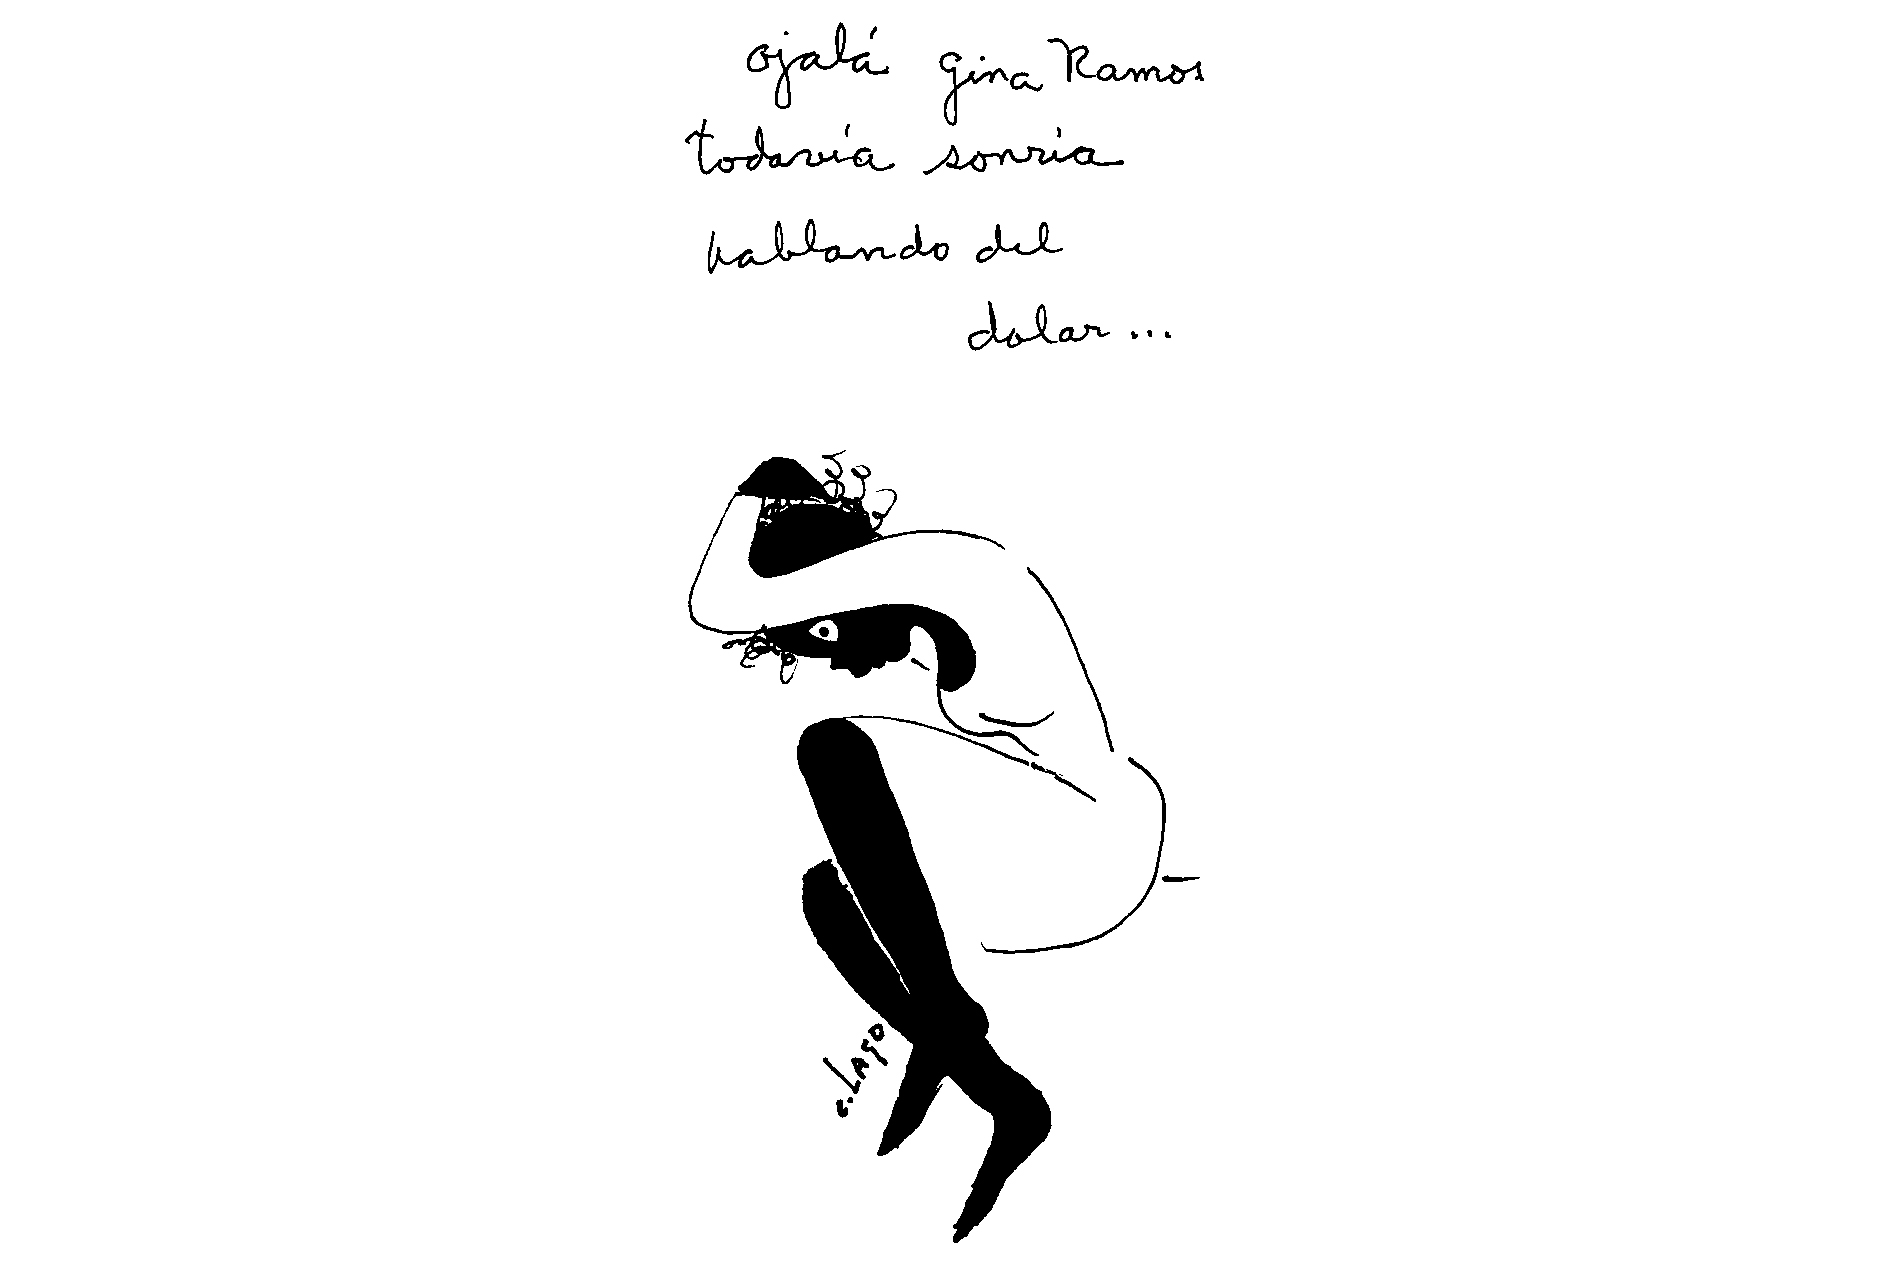 ojalá gina Ramos
todavía sonría
hablando del
dolar...
c. Lago